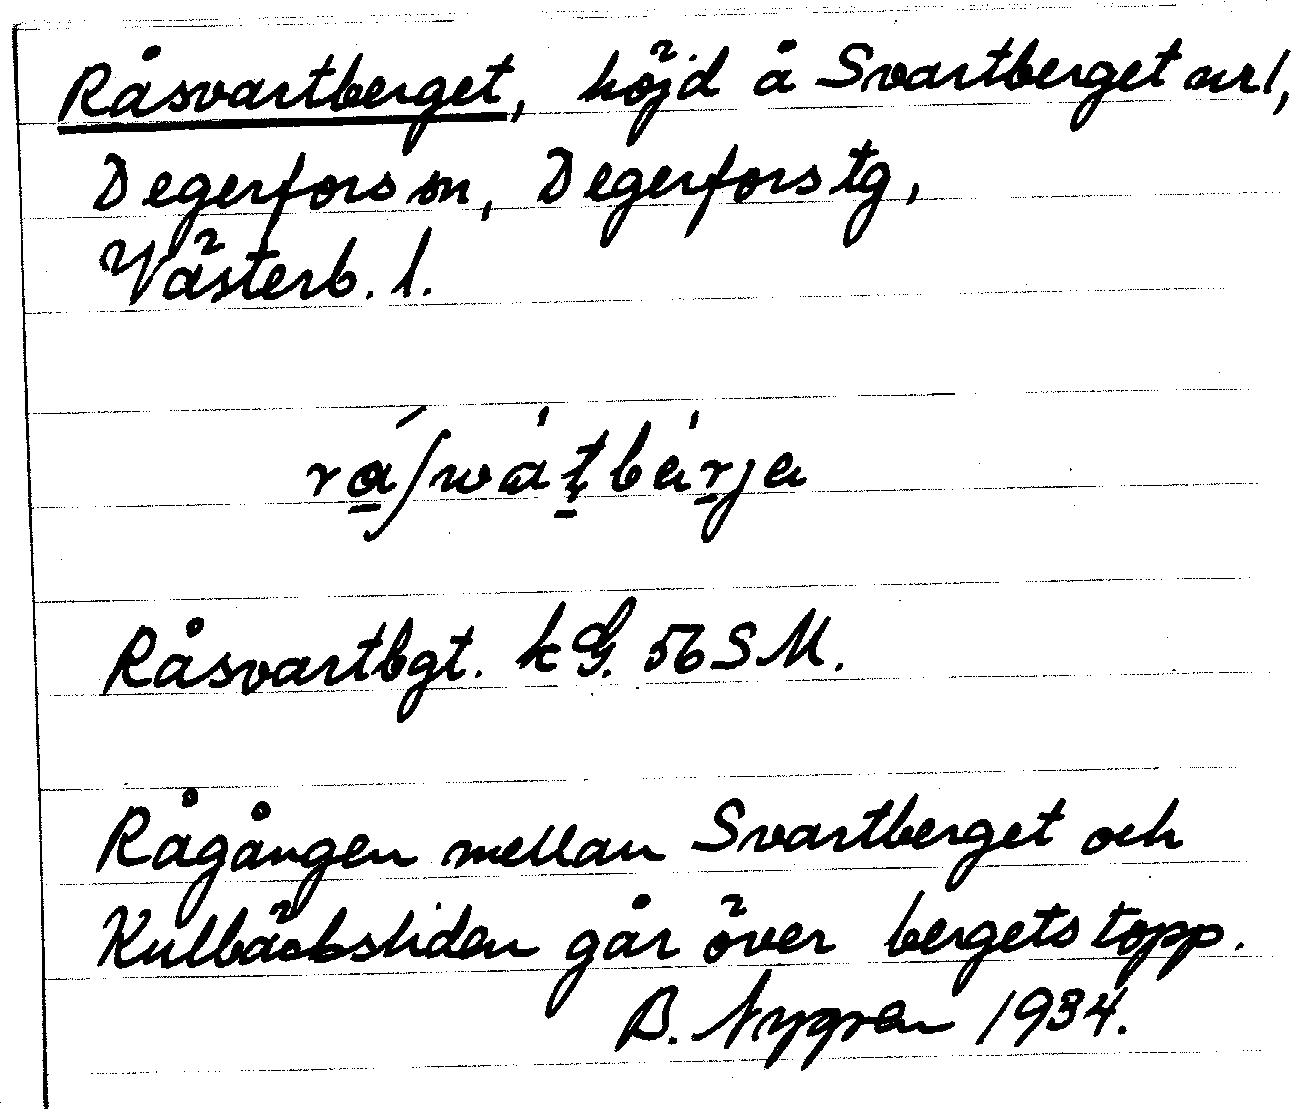 Råsvartberget, höjd å Svartberget nr 1,
Degerfors sn, Degerfors tg,
Västerb. l.
rá̱ʃwàṯbàṟja
Råsvartbgt. kG. 56 SM.
Rågången mellan Svartberget och
Kulbäcksliden går över bergets topp.
B. Nygren 1934.